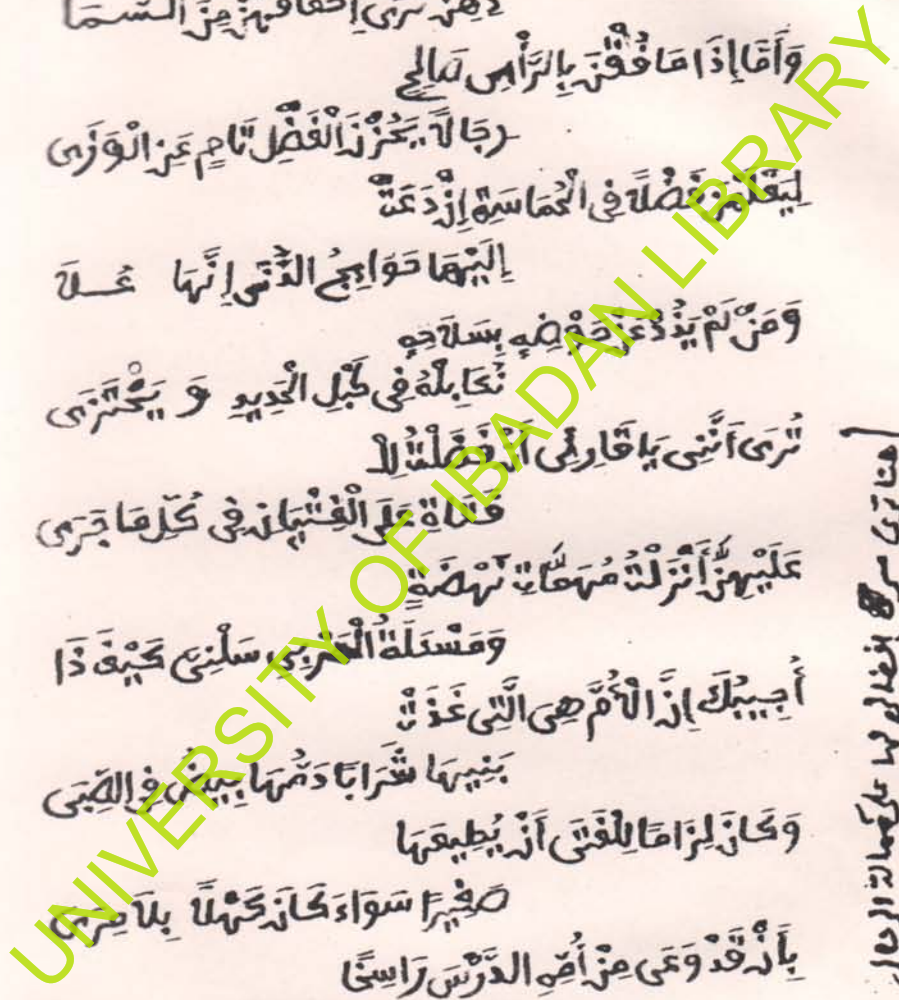 إخفاقهن من السما
وَأَمَّا إِذَا مَا فُقْنَ بِالرَّأْسِ صَالِحِ
رِجَالاً يَحُزْنَ الْفَضْلَ تَامٍ عَنِ الْوَرَى
فَضْلًا فِي الْحُمَاسَةِ إِذْ دَعَتْ
إِلَيْهَا حَوَايِجُ الدُّنَى إِنَّهَا عُلَا
وَمَنْ لَمْ يَذُدْ عَنْ حَوْضِهِ بِسَلَاحِهِ
فِي كَبْلِ الْحَدِيدِ وَ
تُرَى أَنَّنِي يَا قَارِئِي أَنْ فَضَّلْتُ لِلْ
فَتَاةِ عَلَى الْفِتْيَانِ فِي كُلِّ مَا جَرَى
عَلَيْهِنَّ أَنْزَلْتُ مُهِمَّاتِ نَهْضَةٍ
وَمَسْئَلَةُ سَلْنِي كَيْفَ ذَا
أُجِيبُكَ إِنَّ الْأُمَّ هِيَ الَّتِي غَذَتْ
بَنِيهَا شَرَابًا دَمُّهَا بِيضُ فِي الصِّبَى
وَكَانَ لِزَامًا لِلْفَتَى أَنْ يُطِيعَهَا
صَغِيرًا سَوَاءَ كَانَ كَهْلًا بِلَا مِرَى
بِأَنْ قَدْ وَعَى مِنْ أُمِّهِ الدَّرْسَ رَاسِخًا
هنا ترى سر
UNIVERSITY OF IBADAN LIBRARY